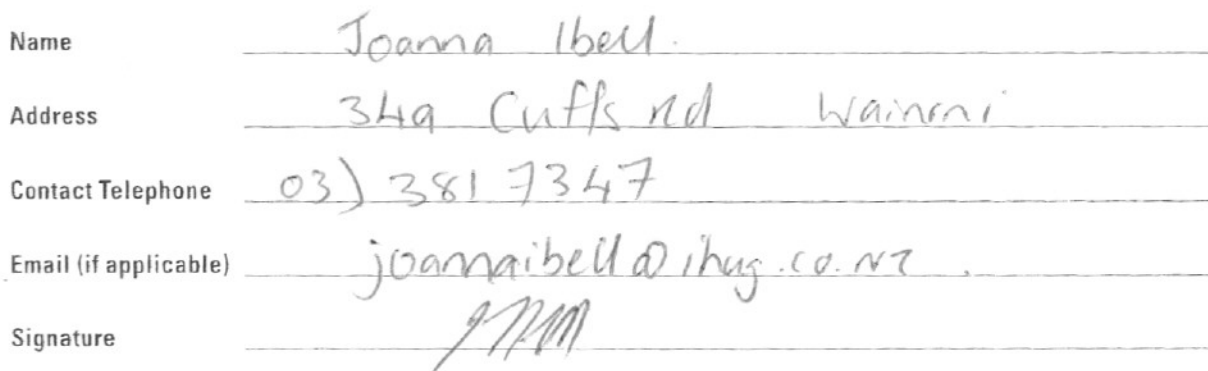 Name Joanna Ibell.
Address 349 Cuffs Rd Wainoni
Contact Telephone 03) 381 7347
Email (if applicable) joannaibell@ihug.co.nz.
Signature